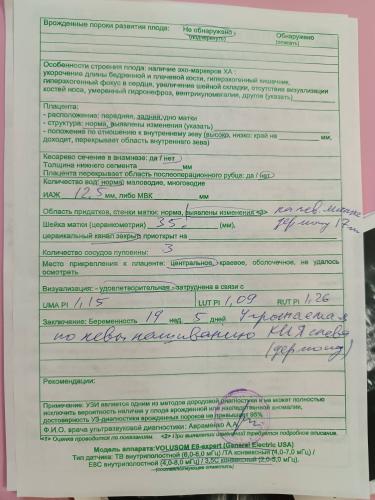 Врожденные пороки развития плода: Не обнаружено Обнаружено
(подчеркнуть) (описать)
Особенности строения плода: наличие эхо-маркеров ХА :
укорочение длины бедренной и плечевой кости, гиперэхогенный кишечник,
гиперэхогенный фокус в сердце, увеличение шейной складки, отсутствие визуализации
костей носа, умеренный гидронефроз, вентрикуломегалия, другое (указать)
Плацента:
- расположение: передняя, задняя, дно матки
- структура: норма, выявлены изменения (указать)
- положение по отношению к внутреннему зеву (высоко, низко: край на мм,
доходит, перекрывает область внутреннего зева)
Кесарево сечение в анамнезе: да / нет
Толщина нижнего сегмента мм
Плацента перекрывает область послеоперационного рубца: да / нет
Количество вод: норма, маловодие, многоводие
ИАЖ 12,5 мм, либо МВК мм
Область придатков, стенки матки: норма, выявлены изменения <2> киста
дермоид 17
Шейка матки (цервикометрия) 35 (мм),
цервикальный канал закрыт приоткрыт на
Количество сосудов пуповины: 3
Место прикрепления к плаценте: центральное, краевое, оболочечное, не удалось
осмотреть
Визуализация: - удовлетворительная - затруднена в связи с
UMA PI 1,15 LUT PI 1,09 RUT PI 1,26
Заключение: Беременность 19 нед 5 дней Угрожаемая
по невынашиванию
(дермоид)
Рекомендации:
Примечание: УЗИ является одним из методов дородовой диагностики и не может полностью
исключить вероятность наличия у плода врожденной или наследственной аномалии,
достоверность УЗ-диагностики врожденных пороков не превышает 95%
Ф.И.О. врача ультразвуковой диагностики: Авраменко А.А.
<1> Оценка проводится по показаниям. <2> При выявлении изменений требуется подробное описание.
Модель аппарата:VOLUSOM E8-expert (General Electric USA)
Тип датчика: ТВ внутриполостной (6,0-9,0 мГц) /ТА конвексный (4,0-7,0 мГц) /
E8C внутриполостной (4,0-8,0 мГц) / 3,5С конвексный (2,0-5,0 мГц).
(соответствующее отметить)